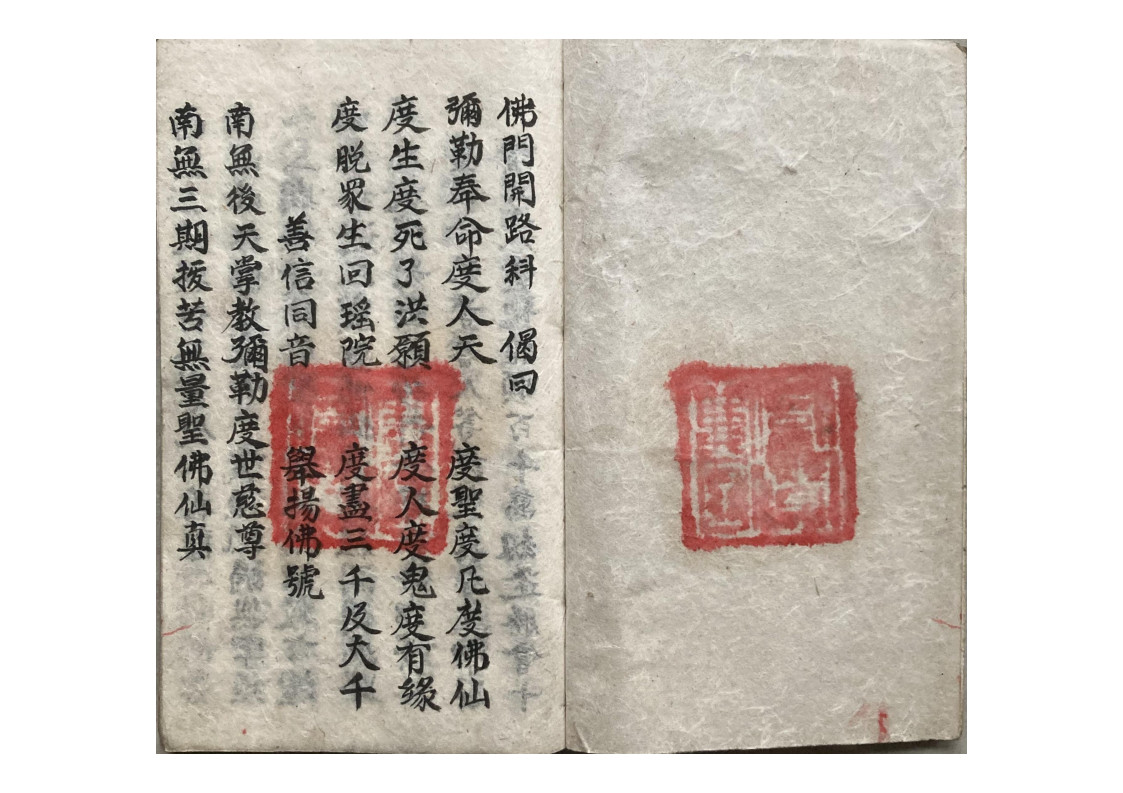 佛門開路科 偈曰
彌勒奉命度人天 度聖度凡度佛仙
度生度死了洪願 度人度鬼度有緣
度脫眾生回瑤院 度盡三千及大千
善信同音 舉揚佛號
南無後天掌教彌勒度世慈尊
南無三期拔苦無量聖佛仙真